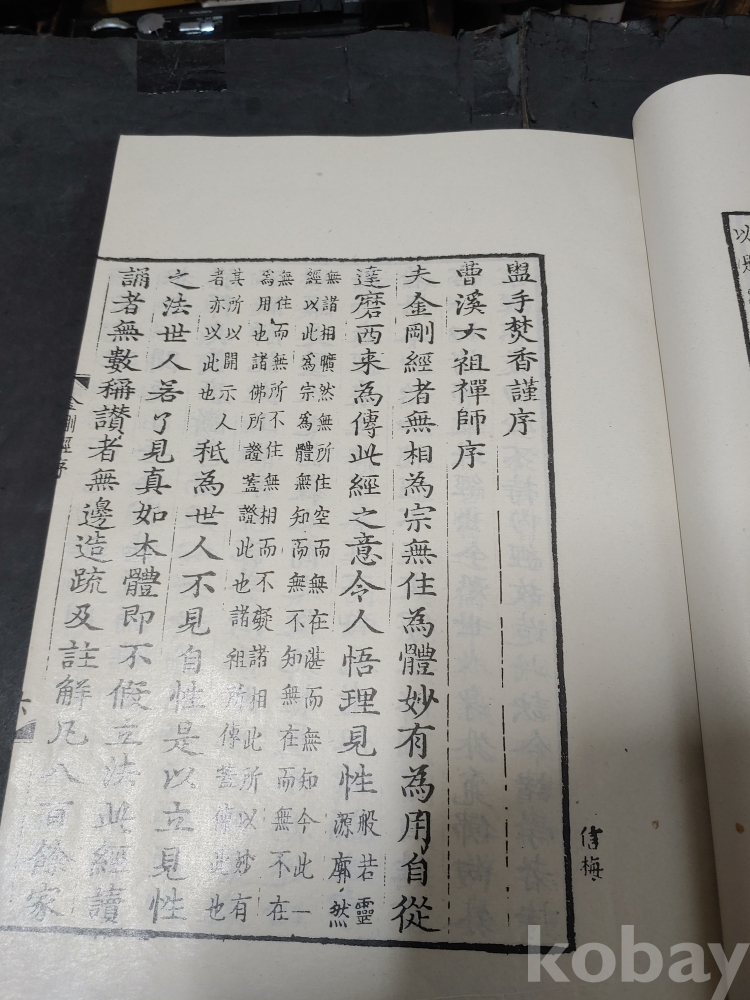 盥手焚香謹序
曹溪六祖禪師序
夫金剛經者無相為宗無住為體妙有為用自從
達磨西来為傳此經之意令人悟理見性般若靈
源廓然
無諸相曠然無所住空而無在湛而無知今此一
經以此為宗為體無知而無不知無在而無不在
無住而無所不住無相而不礙諸相此所以妙有
為用也諸佛所證蓋證此也諸祖所傳蓋傳此也
其所以開示人
者亦以此也
秖為世人不見自性是以立見性
之法世人若了見真如本體即不假立法此經讀
誦者無數稱讃者無邊造疏及註解凡八百餘家
金剛經序
六
梅
kobay